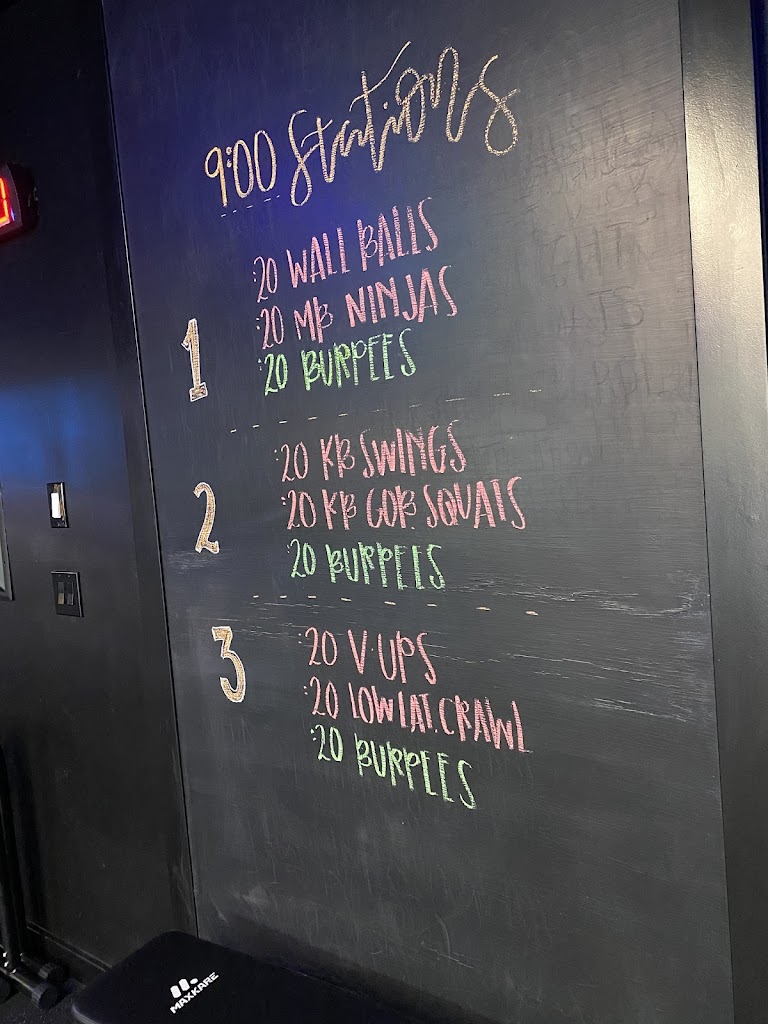 9:00 Stations
1
:20 WALL BALLS
:20 MB NINJAS
:20 BURPEES
2
:20 KB SWINGS
:20 KB GOB SQUATS
:20 BURPEES
3
:20 V-UPS
:20 LOW LAT. CRAWL
:20 BURPEES
MAXKARE